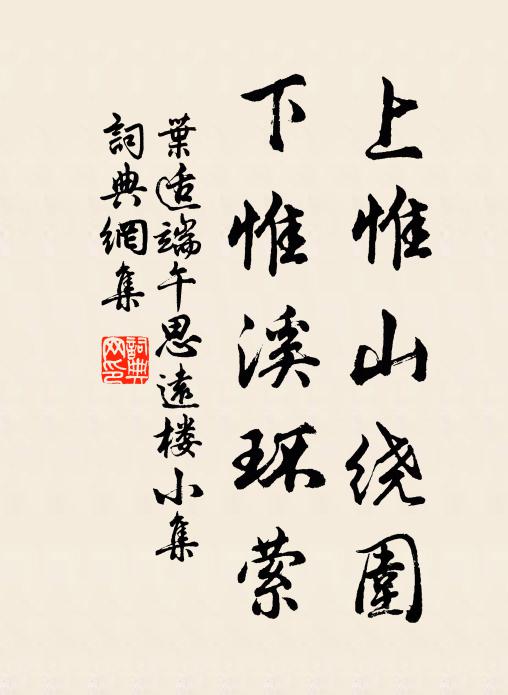 上惟山绕围
下惟溪环萦
葉适端午思遠楼小集
詞典網集
詞典
网印